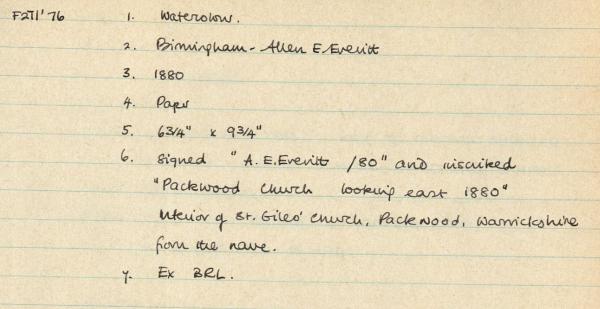 F271'76 1. Watercolour.
2. Birmingham - Allen E. Everitt
3. 1880
4. Paper
5. 6 3/4" x 9 3/4"
6. Signed "A. E. Everitt /80" and inscribed
"Packwood Church looking east 1880"
Interior of St. Giles' Church, Packwood, Warwickshire
from the nave.
7. Ex BRL.